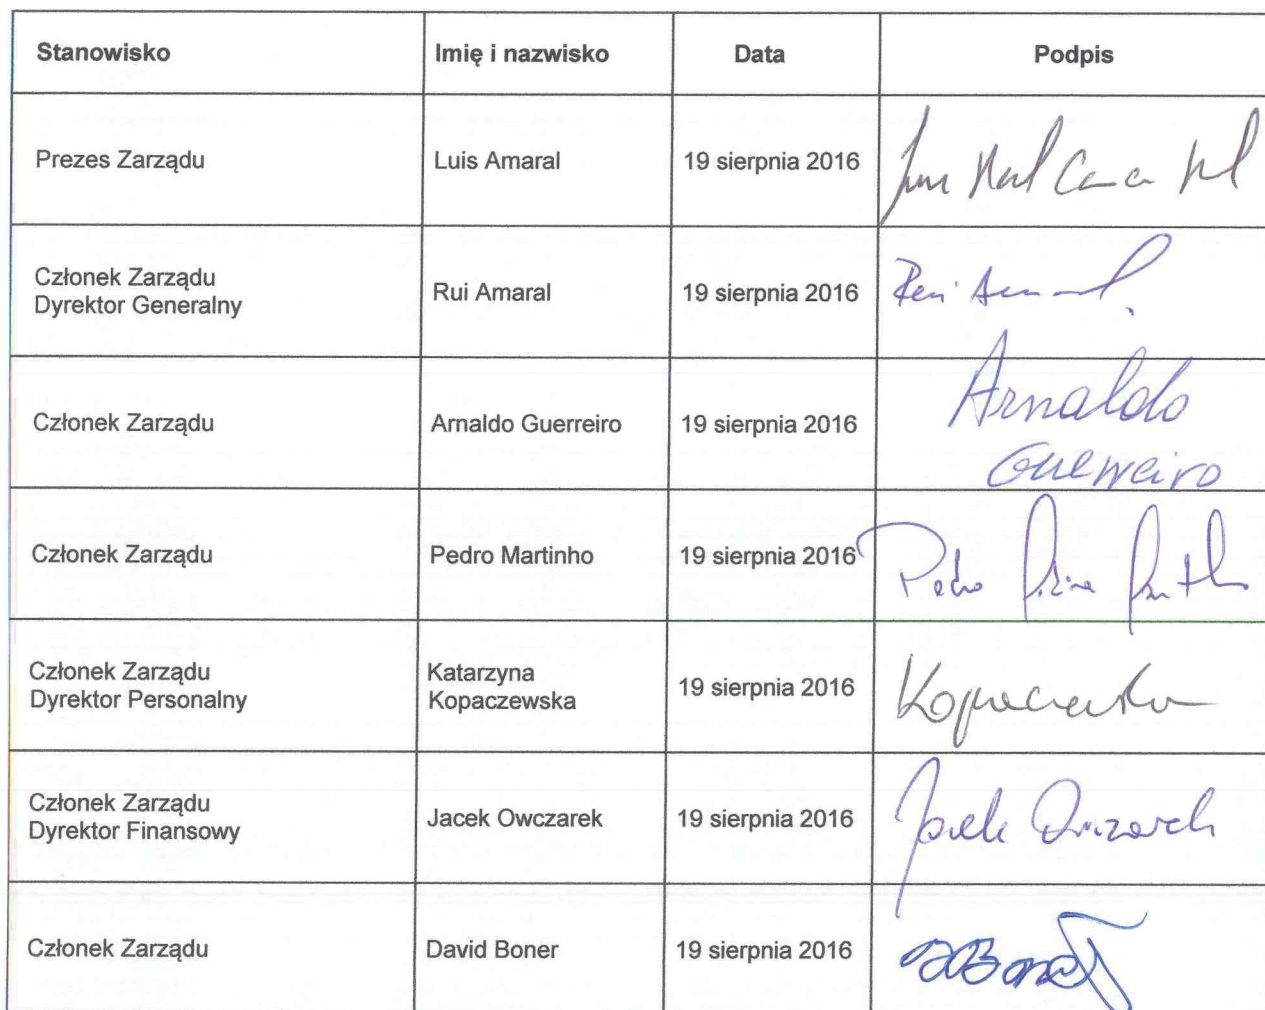 Stanowisko Imię i nazwisko Data Podpis
Prezes Zarządu Luis Amaral 19 sierpnia 2016
Członek Zarządu
Dyrektor Generalny Rui Amaral 19 sierpnia 2016
Członek Zarządu Arnaldo Guerreiro 19 sierpnia 2016 Arnaldo
Guerreiro
Członek Zarządu Pedro Martinho 19 sierpnia 2016 Pedro
Członek Zarządu
Dyrektor Personalny Katarzyna
Kopaczewska 19 sierpnia 2016 Kopaczewska
Członek Zarządu
Dyrektor Finansowy Jacek Owczarek 19 sierpnia 2016 Jacek Owczarek
Członek Zarządu David Boner 19 sierpnia 2016